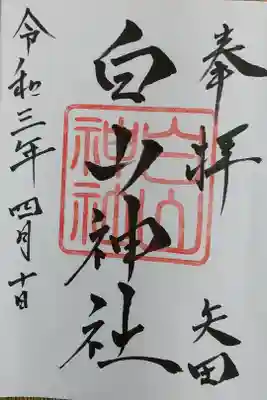 奉拝
矢田
白山神社
令和三年四月十日